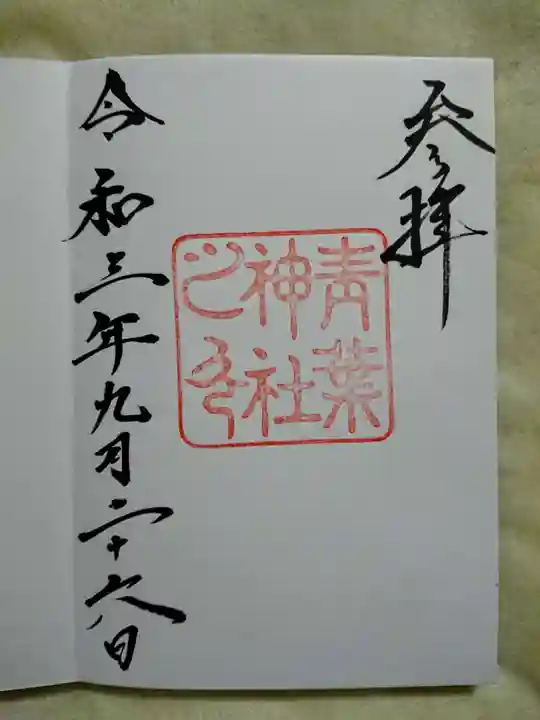 参拝
青葉
神社
之印
令和三年九月二十六日